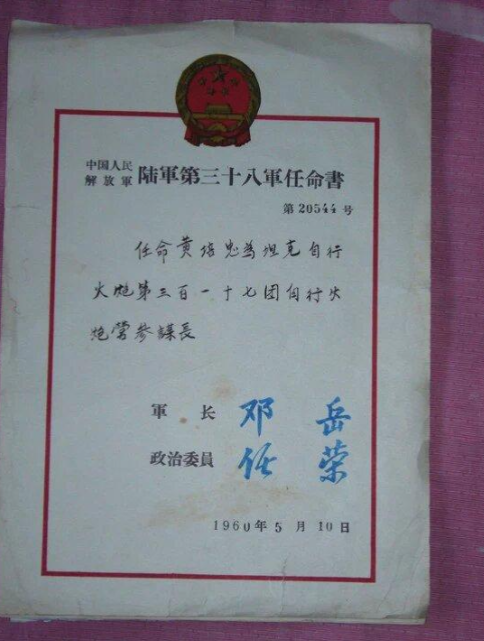 中国人民
解放軍 陆軍第三十八軍任命書
第20544号
任命黄培忠為坦克自行
火炮第三百一十七团自行火
炮营参謀長
軍长 邓岳
政治委員 任荣
1960年5月10日